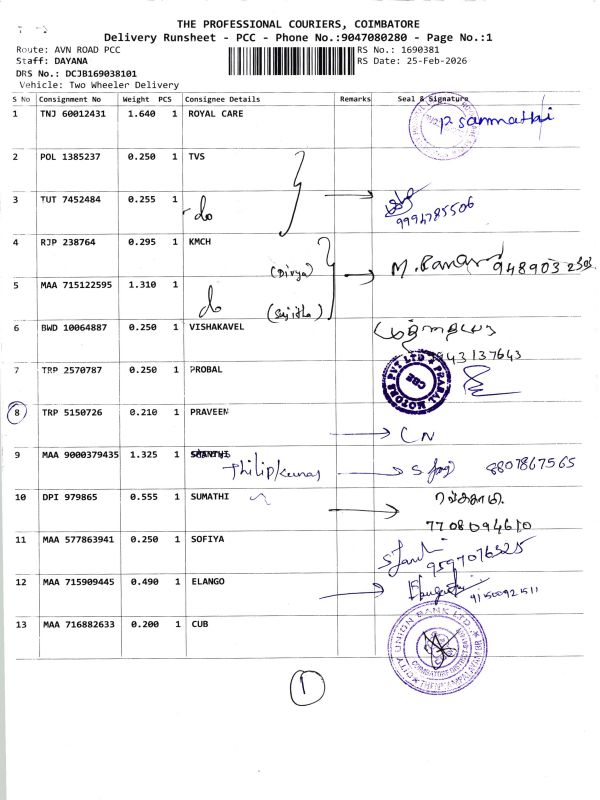 THE PROFESSIONAL COURIERS, COIMBATORE
Delivery Runsheet - PCC - Phone No.:9047080280 - Page No.:1
Route: AVN ROAD PCC RS No.: 1690381
Staff: DAYANA RS Date: 25-Feb-2026
DRS No.: DCJB169038101
Vehicle: Two Wheeler Delivery
S No Consignment No Weight PCS Consignee Details Remarks Seal & Signature
1 TNJ 60012431 1.640 1 ROYAL CARE
2 POL 1385237 0.250 1 TVS
3 TUT 7452484 0.255 1 do
9994785506
4 RJP 238764 0.295 1 KMCH
(Divya) M.
5 MAA 715122595 1.310 1 do
6 BWD 10064887 0.250 1 VISHAKAVEL
7 TRP 2570787 0.250 1 PROBAL
PRABAL MOTORS PVT LTD CBE
8 TRP 5150726 0.210 1 PRAVEEN
CN
9 MAA 9000379435 1.325 1
8807867565
10 DPI 979865 0.555 1 SUMATHI
7708094610
11 MAA 577863941 0.250 1 SOFIYA
9597076525
12 MAA 715909445 0.490 1 ELANGO
13 MAA 716882633 0.200 1 CUB
CITY UNION BANK LTD.
1